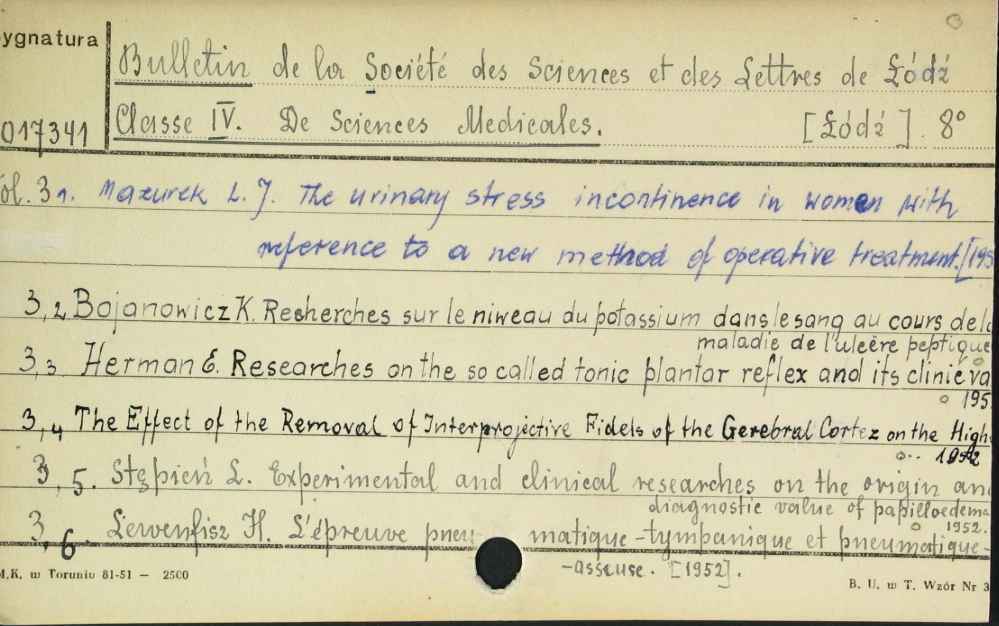 ygnatura
Bulletin de la Société des Sciences et des Lettres de Łódź
017341 Classe IV. De Sciences Medicales. [Łódź]. 8°
ol. 3 1. Mazurek L. J. The urinary stress incontinence in women with
reference to a new method of operative treatment. [195
3,2 Bojanowicz K. Recherches sur le niweau du potassium dans le sang au cours de la
maladie de l'uleère peptique
3,3 Herman E. Researches on the so called tonic plantar reflex and its clinic va
195
3,4 The Effect of the Removal of Interprojective Fidels of the Gerebral Cortez on the High
1952
3,5. Stępień L. Experimental and clinical researches on the origin and
diagnostic value of papilloedema
1952.
3,6. Lewenfisz H. L'épreuve pneu- matique-tympanique et pneumatique-
-asseuse. [1952].
M.K. w Toruniu 81-51 — 2500
B. U. w T. Wzór Nr 3